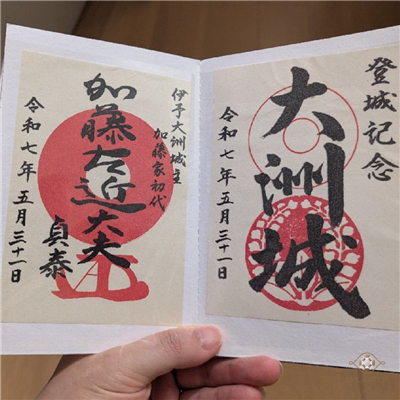 登城記念
大洲城
令和七年五月三十一日
伊予大洲城主
加藤家初代
加藤左近大夫
貞泰
令和七年五月三十一日